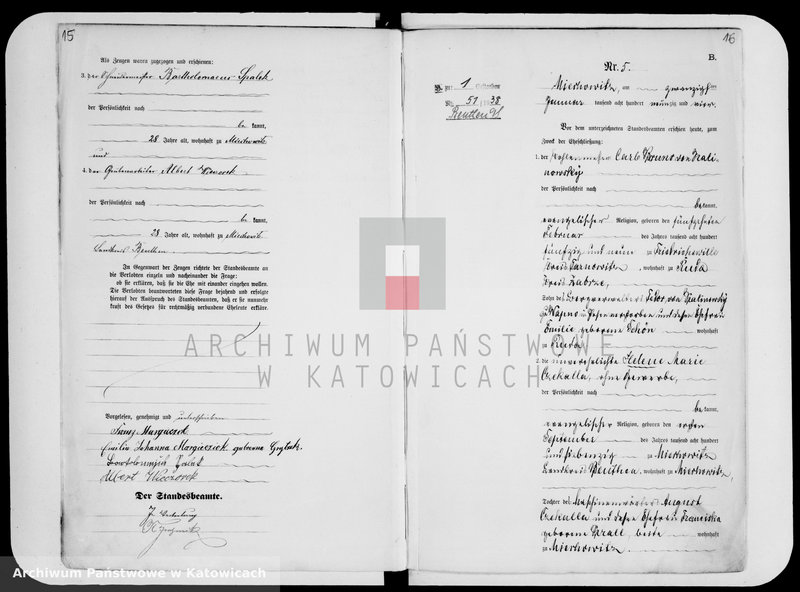 15
Als Zeugen waren zugezogen und erschienen:
3. der Bartholomaeus Spalek
der Persönlichkeit nach
be kannt,
28 Jahre alt, wohnhaft zu Miechowitz
und
4. der Albert Wieczorek
der Persönlichkeit nach
be kannt,
28 Jahre alt, wohnhaft zu Miechowitz
Landkreis Beuthen
In Gegenwart der Zeugen richtete der Standesbeamte an
die Verlobten einzeln und nacheinander die Frage:
ob sie erklären, daß sie die Ehe mit einander eingehen wollen.
Die Verlobten beantworteten diese Frage bejahend und erfolgte
hierauf der Ausspruch des Standesbeamten, daß er sie nunmehr
kraft des Gesetzes für rechtmäßig verbundene Eheleute erkläre.
Vorgelesen, genehmigt und unterschrieben
Franz
Emilie Johanna geborene
Albert Wieczorek
Der Standesbeamte.
16
B.
Nr. 5.
Miechowitz, am zwanzigsten
Januar tausend acht hundert neunzig und vier
Nr. 51/1938
Beuthen
Vor dem unterzeichneten Standesbeamten erschien heute, zum
Zweck der Eheschließung:
1. der Carl Bruno von Kali-
nowsky
der Persönlichkeit nach
be kannt,
evangelischer Religion, geboren den fünfzehnten
Februar des Jahres tausend acht hundert
fünfzig und neun zu Friedrichswille
Kreis Tarnowitz, wohnhaft zu Ruda
Kreis Zabrze,
Sohn des von Kalinowsky
und dessen Ehefrau
Emilie geborene Schön wohnhaft
zu Ruda
2. die unverehelichte Helene Marie
Czekalla, ohne Gewerbe,
der Persönlichkeit nach
be kannt,
evangelischer Religion, geboren den ersten
September des Jahres tausend acht hundert
und siebenzig zu Miechowitz
Landkreis Beuthen, wohnhaft zu Miechowitz,
Tochter des Maschinenwärters August
Czekalla und dessen Ehefrau Franciska
geborene Krall, beide wohnhaft
zu Miechowitz.
ARCHIWUM PAŃSTWOWE
W KATOWICACH
Archiwum Państwowe w Katowicach